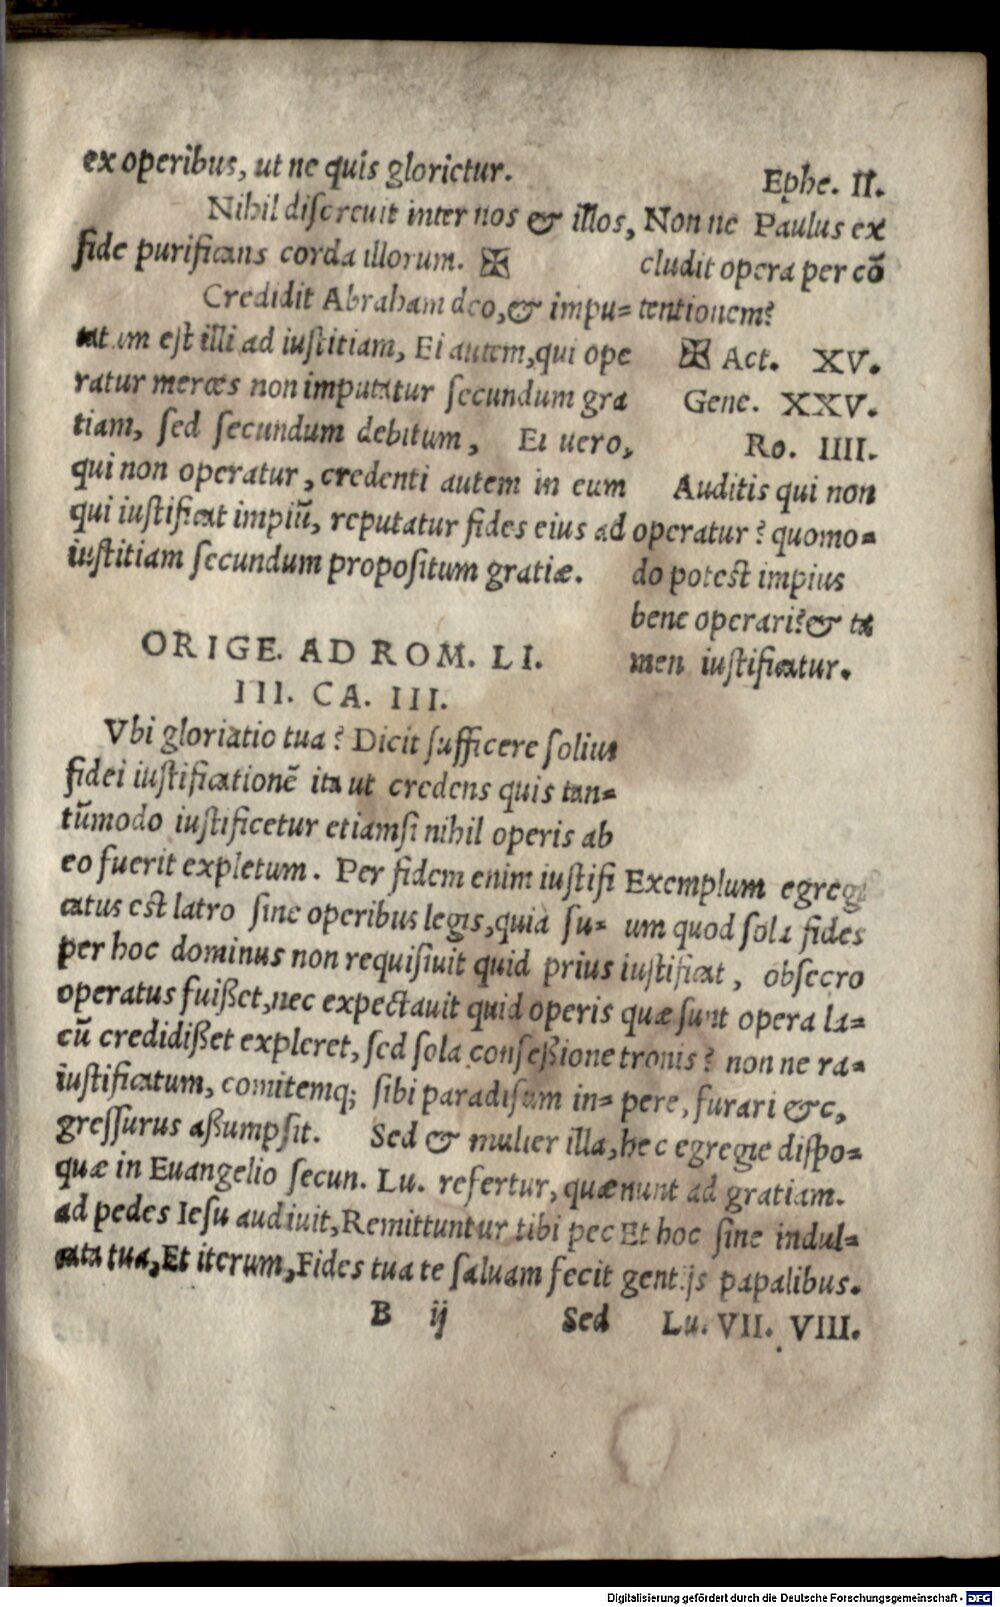 ex operibus, ut ne quis glorietur.
Nihil discreuit inter nos & illos,
fide purificans corda illorum. ✠
Credidit Abraham deo, & impu=
tatum est illi ad iustitiam, Ei autem, qui ope
ratur merces non imputatur secundum gra
tiam, sed secundum debitum, Ei uero,
qui non operatur, credenti autem in eum
qui iustificat impiū, reputatur fides eius ad
iustitiam secundum propositum gratiæ.
ORIGE. AD ROM. LI.
III. CA. III.
Vbi gloriatio tua? Dicit sufficere solius
fidei iustificationē ita ut credens quis tan=
tūmodo iustificetur etiamsi nihil operis ab
eo fuerit expletum. Per fidem enim iustifi
catus est latro sine operibus legis, quia su=
per hoc dominus non requisiuit quid prius
operatus fuißet, nec expectauit quid operis
cū credidißet expleret, sed sola confeßione
iustificatum, comitemq; sibi paradisum in=
gressurus aßumpsit. Sed & mulier illa,
quæ in Euangelio secun. Lu. refertur, quæ
ad pedes Iesu audiuit, Remittuntur tibi pec
cata tua, Et iterum, Fides tua te saluam fecit
B ij Sed
Ephe. II.
Non ne Paulus ex
cludit opera per cō
tentionem?
✠ Act. XV.
Gene. XXV.
Ro. IIII.
Auditis qui non
operatur? quomo=
do potest impius
bene operari? & ta
men iustificatur.
Exemplum egregi
um quod sola fides
iustificat, obsecro
quæ sunt opera la=
tronis? non ne ra=
pere, furari &c,
hec egregie dispo=
nunt ad gratiam.
Et hoc sine indul=
gentijs papalibus.
Lu. VII. VIII.
Digitalisierung gefördert durch die Deutsche Forschungsgemeinschaft - DFG